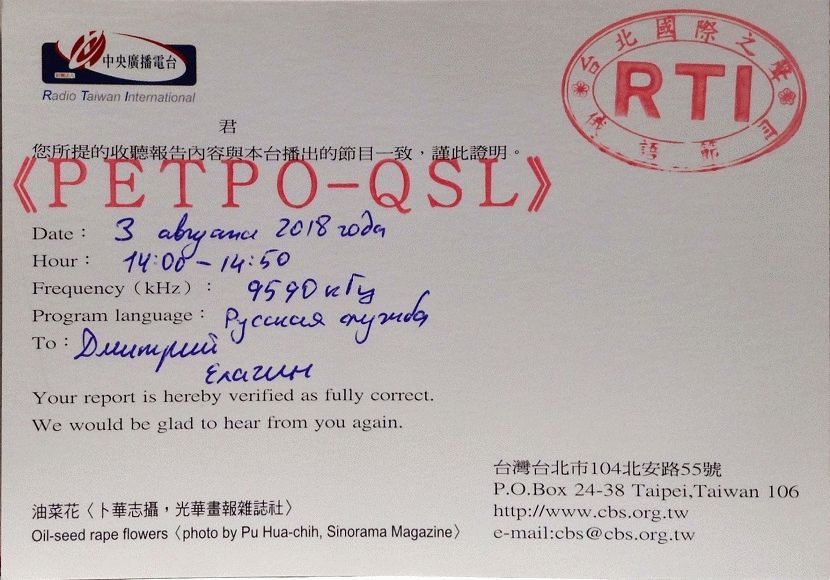 中央廣播電台
財團法人
Radio Taiwan International
台北國際之聲
RTI
俄語節目
君
您所提的收聽報告內容與本台播出的節目一致，謹此證明。
《РЕТРО-QSL》
Date： 3 августа 2018 года
Hour： 14:00 – 14:50
Frequency（kHz）： 9590 кГц
Program language： Русская служба
To： Дмитрий
Елагин
Your report is hereby verified as fully correct.
We would be glad to hear from you again.
油菜花〈卜華志攝，光華畫報雜誌社〉
Oil-seed rape flowers〈photo by Pu Hua-chih, Sinorama Magazine〉
台灣台北市104北安路55號
P.O.Box 24-38 Taipei,Taiwan 106
http://www.cbs.org.tw
e-mail:cbs@cbs.org.tw